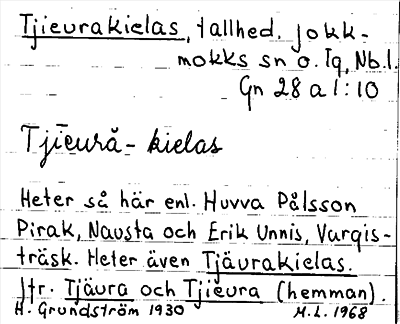 Tjieurakielas, tallhed. Jokk-
mokks sn o. Tg, Nb.l.
Gn 28 a 1:10
Tjīeurå - kielas
Heter så här enl. Huvva Pålsson
Pirak, Navsta och Erik Unnis, Vargis-
träsk. Heter även Tjäurakielas.
Jfr. Tjäura och Tjieura (hemman).
H. Grundström 1930 M.L. 1968